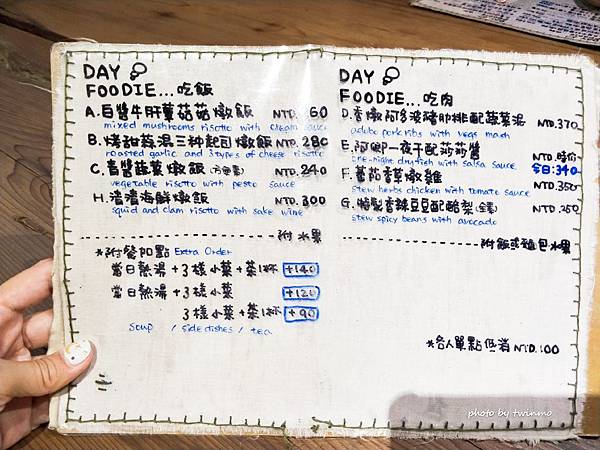 DAY
FOODIE...吃飯
A.白醬牛肝蕈菇菇燉飯 NTD. 60
mixed mushrooms risotto with cream sauce
B.烤甜蒜混三种起司燉飯 NTD.280
roasted garlic and 3 types of cheese risotto
C.青醬蔬菜燉飯 NTD.240
vegetable risotto with pesto sauce
H.清酒海鮮燉飯 NTD.300
squid and clam risotto with sake wine
附水果
*附餐加點 Extra Order
當日熱湯+3樣小菜+茶1杯 +140
當日熱湯+3樣小菜 +120
3樣小菜+茶1杯 +90
soup / side dishes / tea
DAY
FOODIE...吃肉
D.香燉阿多波豬肋排配蔬菜泥 NTD.370
adobo pork ribs with vegs mash
E.阿卿一夜干配莎莎醬 NTD.時价
one-night dryfish with salsa sauce 今日:340
F.蕃茄香草燉雞 NTD.350
stew herbs chicken with tomato sauce
G.特製香辣豆豆配酪梨(全素) NTD.250
stew spicy beans with avocado
附飯或麵包水果
*各人單點低消 NTD.100
photo by twinmo